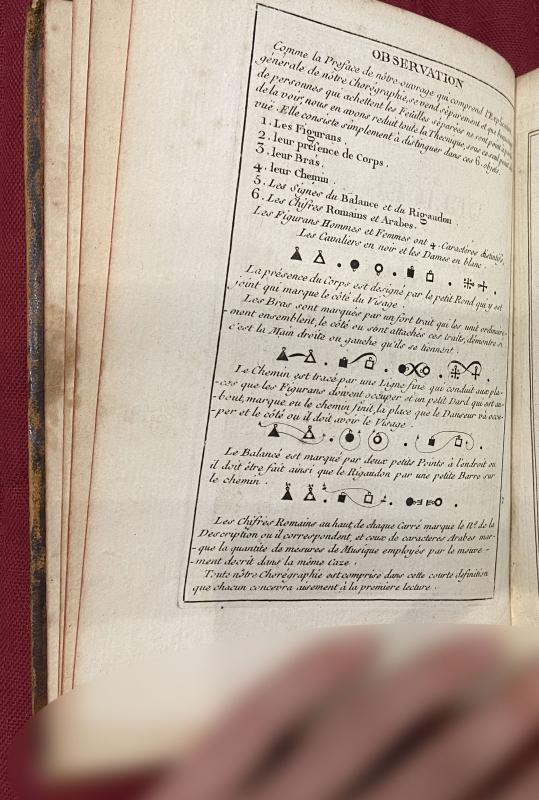 OBSERVATION
Comme la Preface de nôtre ouvrage qui comprend l'Explication
générale de nôtre Chorégraphie, se vend séparement et que beaucoup
de personnes qui achettent les Feüilles séparées ne sont point
de la voir, nous en avons reduit toute la Thecnique, sous ce seul point de
vuë. Elle consiste simplement à distinguer dans ces 6. objets.
1. Les Figurans.
2. leur présence de Corps.
3. leur Bras.
4. leur Chemin.
5. Les Signes du Balance et du Rigaudon.
6. Les Chifres Romains et Arabes.
Les Figurans Hommes et Femmes ont 4. Caractéres distinctifs,
Les Cavaliers en noir et les Dames en blanc.
La présence du Corps est designé par le petit Rond qui y est
joint qui marque le côté du Visage.
Les Bras sont marqués par un fort trait qui les unit ordinaire-
-ment ensemble, et, le côté ou sont attachés ces traits, démontre si
c'est la Main droite ou gauche qu'ils se tiennent.
Le Chemin est tracé par une Ligne fine qui conduit aux pla-
-ces que les Figurans doivent occuper et un petit Dard qui est au
-bout, marque ou le chemin finit, la place que le Danseur va occu-
-per et le côté ou il doit avoir le Visage.
Le Balancé est marqué par deux petits Points à l'endroit ou
il doit être fait ainsi que le Rigaudon par une petite Barre sur
le chemin.
Les Chifres Romains au haut de chaque Carré marque le N.º de la
Description ou il correspondent, et ceux de caractéres Arabes mar-
-que la quantité de mesures de Musique employés par le mouve-
-ment decrit dans la même Caze.
Toute nôtre Chorégraphie est comprise dans cette courte définition
que chacun concevra aisement à la premiere lecture.